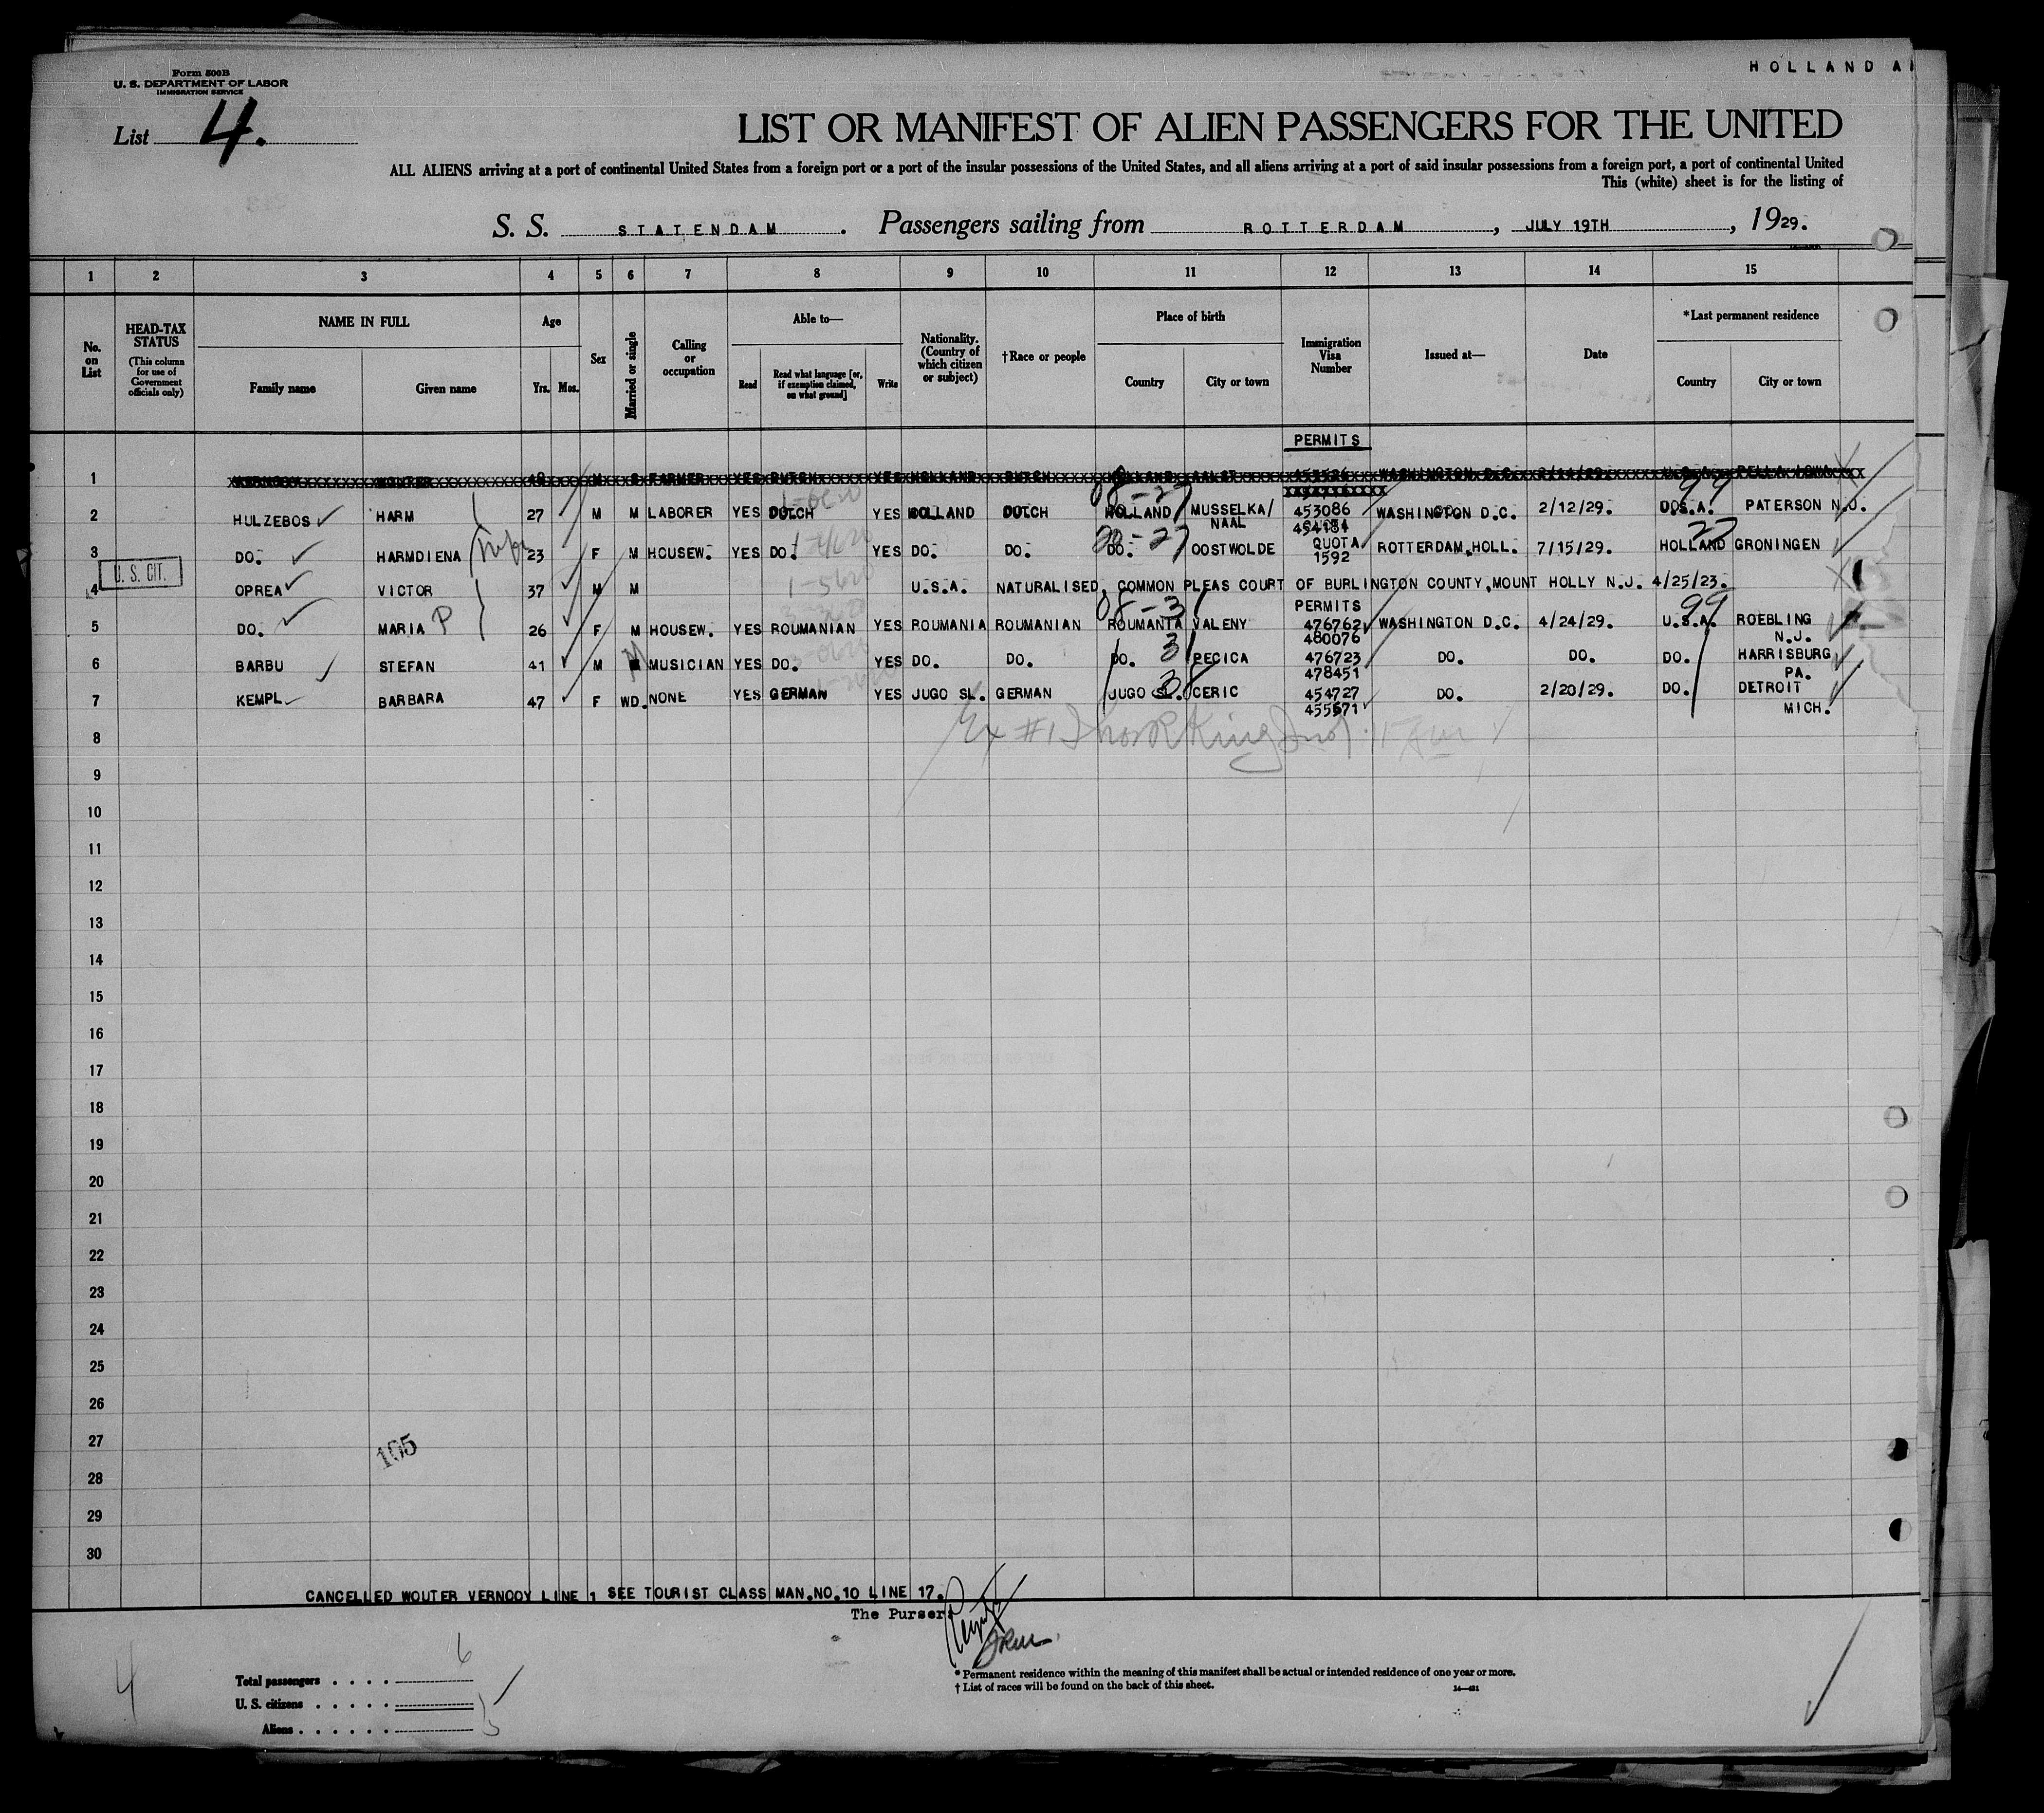 HOLLAND A
Form 500B
U. S. DEPARTMENT OF LABOR
IMMIGRATION SERVICE
List 4.
LIST OR MANIFEST OF ALIEN PASSENGERS FOR THE UNITED
ALL ALIENS arriving at a port of continental United States from a foreign port or a port of the insular possessions of the United States, and all aliens arriving at a port of said insular possessions from a foreign port, a port of continental United
This (white) sheet is for the listing of
S. S. STATENDAM. Passengers sailing from ROTTERDAM, JULY 19TH, 1929.
1 2 3 4 5 6 7 8 9 10 11 12 13 14 15
No. on List
HEAD-TAX STATUS (This column for use of Government officials only)
NAME IN FULL
Family name Given name
Age
Yrs. Mos.
Sex
Married or single
Calling or occupation
Able to—
Read Read what language [or, if exemption claimed, on what ground] Write
Nationality. (Country of which citizen or subject)
†Race or people
Place of birth
Country City or town
Immigration Visa Number
Issued at—
Date
*Last permanent residence
Country City or town
PERMITS
1 WOUTER 48 M S FARMER YES DUTCH YES HOLLAND DUTCH HOLLAND AALST WASHINGTON D.C. U.S.A. PELLA IOWA
08-27 99
2 HULZEBOS HARM 27 M M LABORER YES DUTCH YES HOLLAND DUTCH HOLLAND MUSSELKA/ 453086 WASHINGTON D.C. 2/12/29. U.S.A. PATERSON N.J.
NAAL 454184
27
3 DO. HARMDIENA 23 F M HOUSEW. YES DO. YES DO. DO. DO. OOSTWOLDE QUOTA ROTTERDAM.HOLL. 7/15/29. HOLLAND GRONINGEN
1592
U. S. CIT.
4 OPREA VICTOR 37 M M U.S.A. NATURALISED, COMMON PLEAS COURT OF BURLINGTON COUNTY,MOUNT HOLLY N.J. 4/25/23.
PERMITS 99
5 DO. MARIA P 26 F M HOUSEW. YES ROUMANIAN YES ROUMANIA ROUMANIAN ROUMANIA VALENY 476762 WASHINGTON D.C. 4/24/29. U.S.A. ROEBLING
480076 N.J.
6 BARBU STEFAN 41 M M MUSICIAN YES DO. YES DO. DO. DO. 31 PECICA 476723 DO. DO. DO. HARRISBURG
478451 PA.
7 KEMPL BARBARA 47 F WD. NONE YES GERMAN YES JUGO SL. GERMAN JUGO SL. CERIC 454727 DO. 2/20/29. DO. DETROIT
455571 MICH.
8
9
10
11
12
13
14
15
16
17
18
19
20
21
22
23
24
25
26
27
105
28
29
30
CANCELLED WOUTER VERNOOY LINE 1 SEE TOURIST CLASS MAN.NO.10 LINE 17.
The Purser
4
Total passengers . . . . 6
U. S. citizens . . . . .
Aliens . . . . . . 5
* Permanent residence within the meaning of this manifest shall be actual or intended residence of one year or more.
† List of races will be found on the back of this sheet.